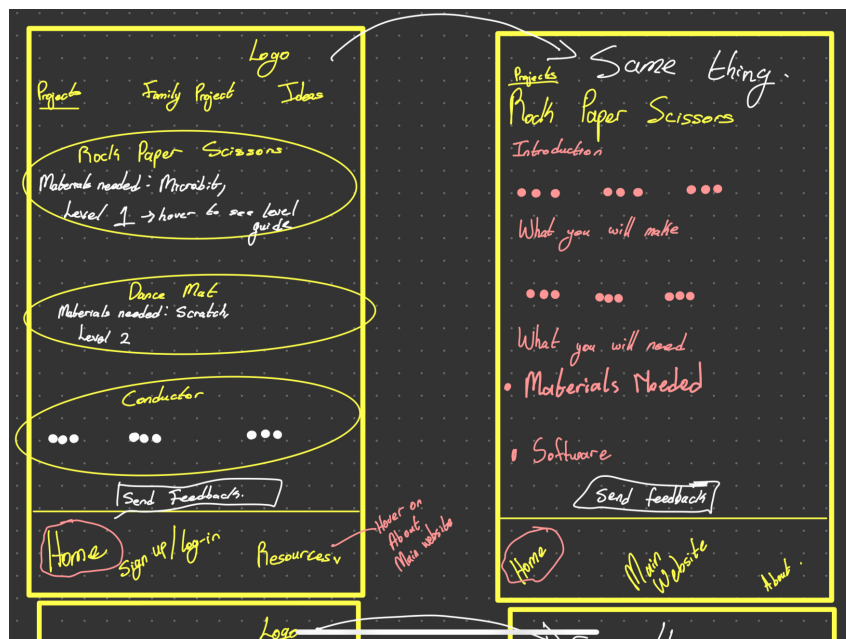 Logo
Projects Family Project Ideas
Rock Paper Scissors
Materials needed: Microbit,
Level 1 → hover to see level
guide
Dance Mat
Materials needed: Scratch,
Level 2
Conductor
Send Feedback.
Home Sign up/log-in Resources v
Hover on
About
Main website
Logo
Same thing.
Projects
Rock Paper Scissors
Introduction
What you will make
What you will need
• Materials Needed
• Software
Send feedback
Home Main
Website
About.